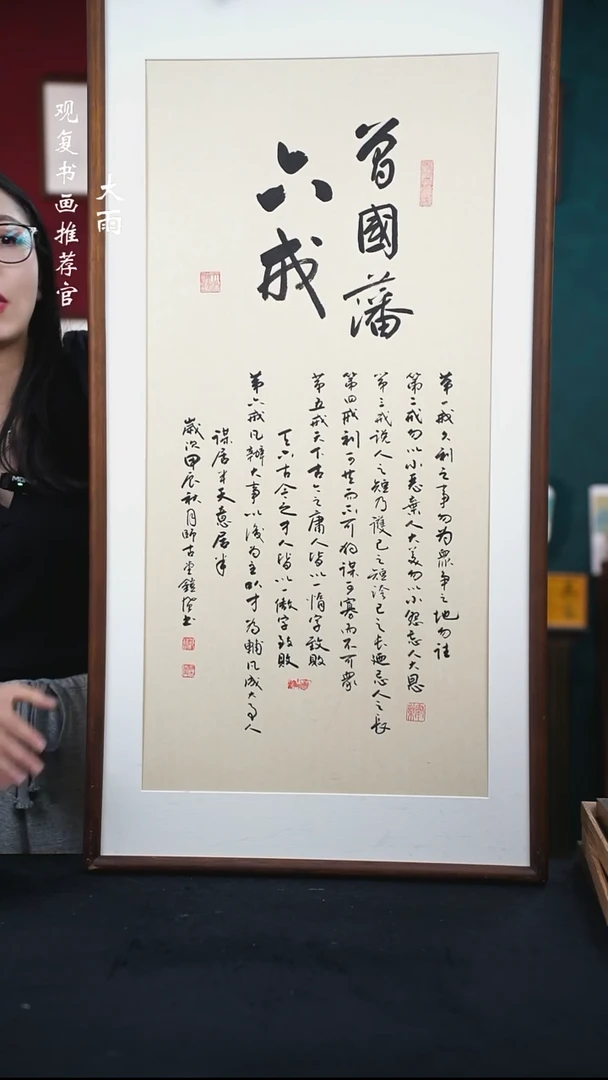 观复书画推荐官
大雨
曾國藩
六戒
第一戒久利之事勿为眾争之地勿往
第二戒勿以小恶棄人大美勿以小怨忘人大恩
第三戒说人之短乃護己之短誇己之长迺忌人之长
第四戒利可共而不可独谋可寡而不可眾
第五戒天下古今之庸人皆以一惰字致败
天下古今之才人皆以一傲字致败
第六戒凡辦大事以识为主以才为輔凡成大事人
谋居半天意居半
歲次甲辰秋月師古堂书